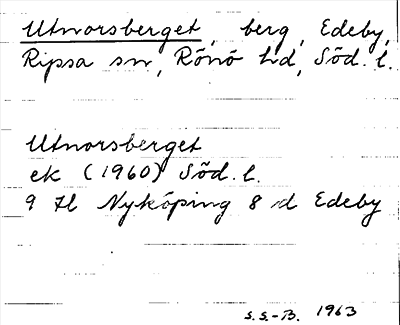 Utnorsberget, berg, Edeby,
Ripsa sn, Rönö hd, Söd. l.
Utnorsberget
ek (1960) Söd. l.
9 H Nyköping 8 d Edeby
S.S.-B. 1963